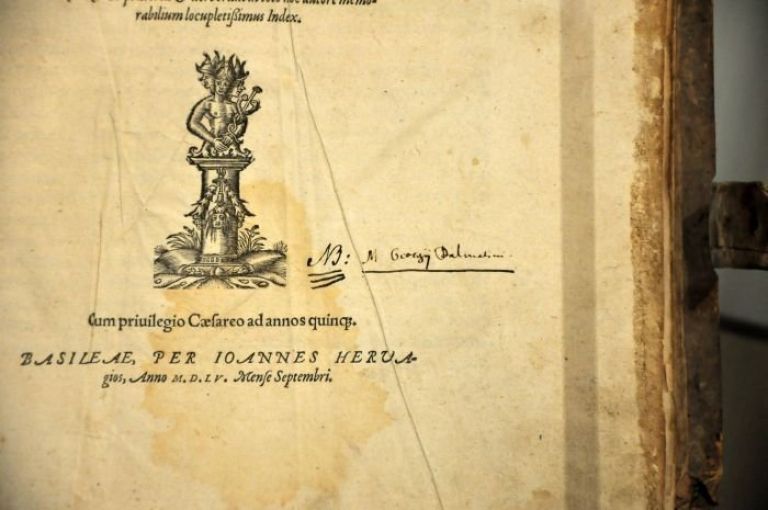 autore memo-
rabilium locupletißimus Index.
NB: M Georgÿ Dalmatini.
Cum priuilegio Cæsareo ad annos quinq;.
BASILEAE, PER IOANNES HERVA-
gios, Anno M. D. LV. Mense Septembri.